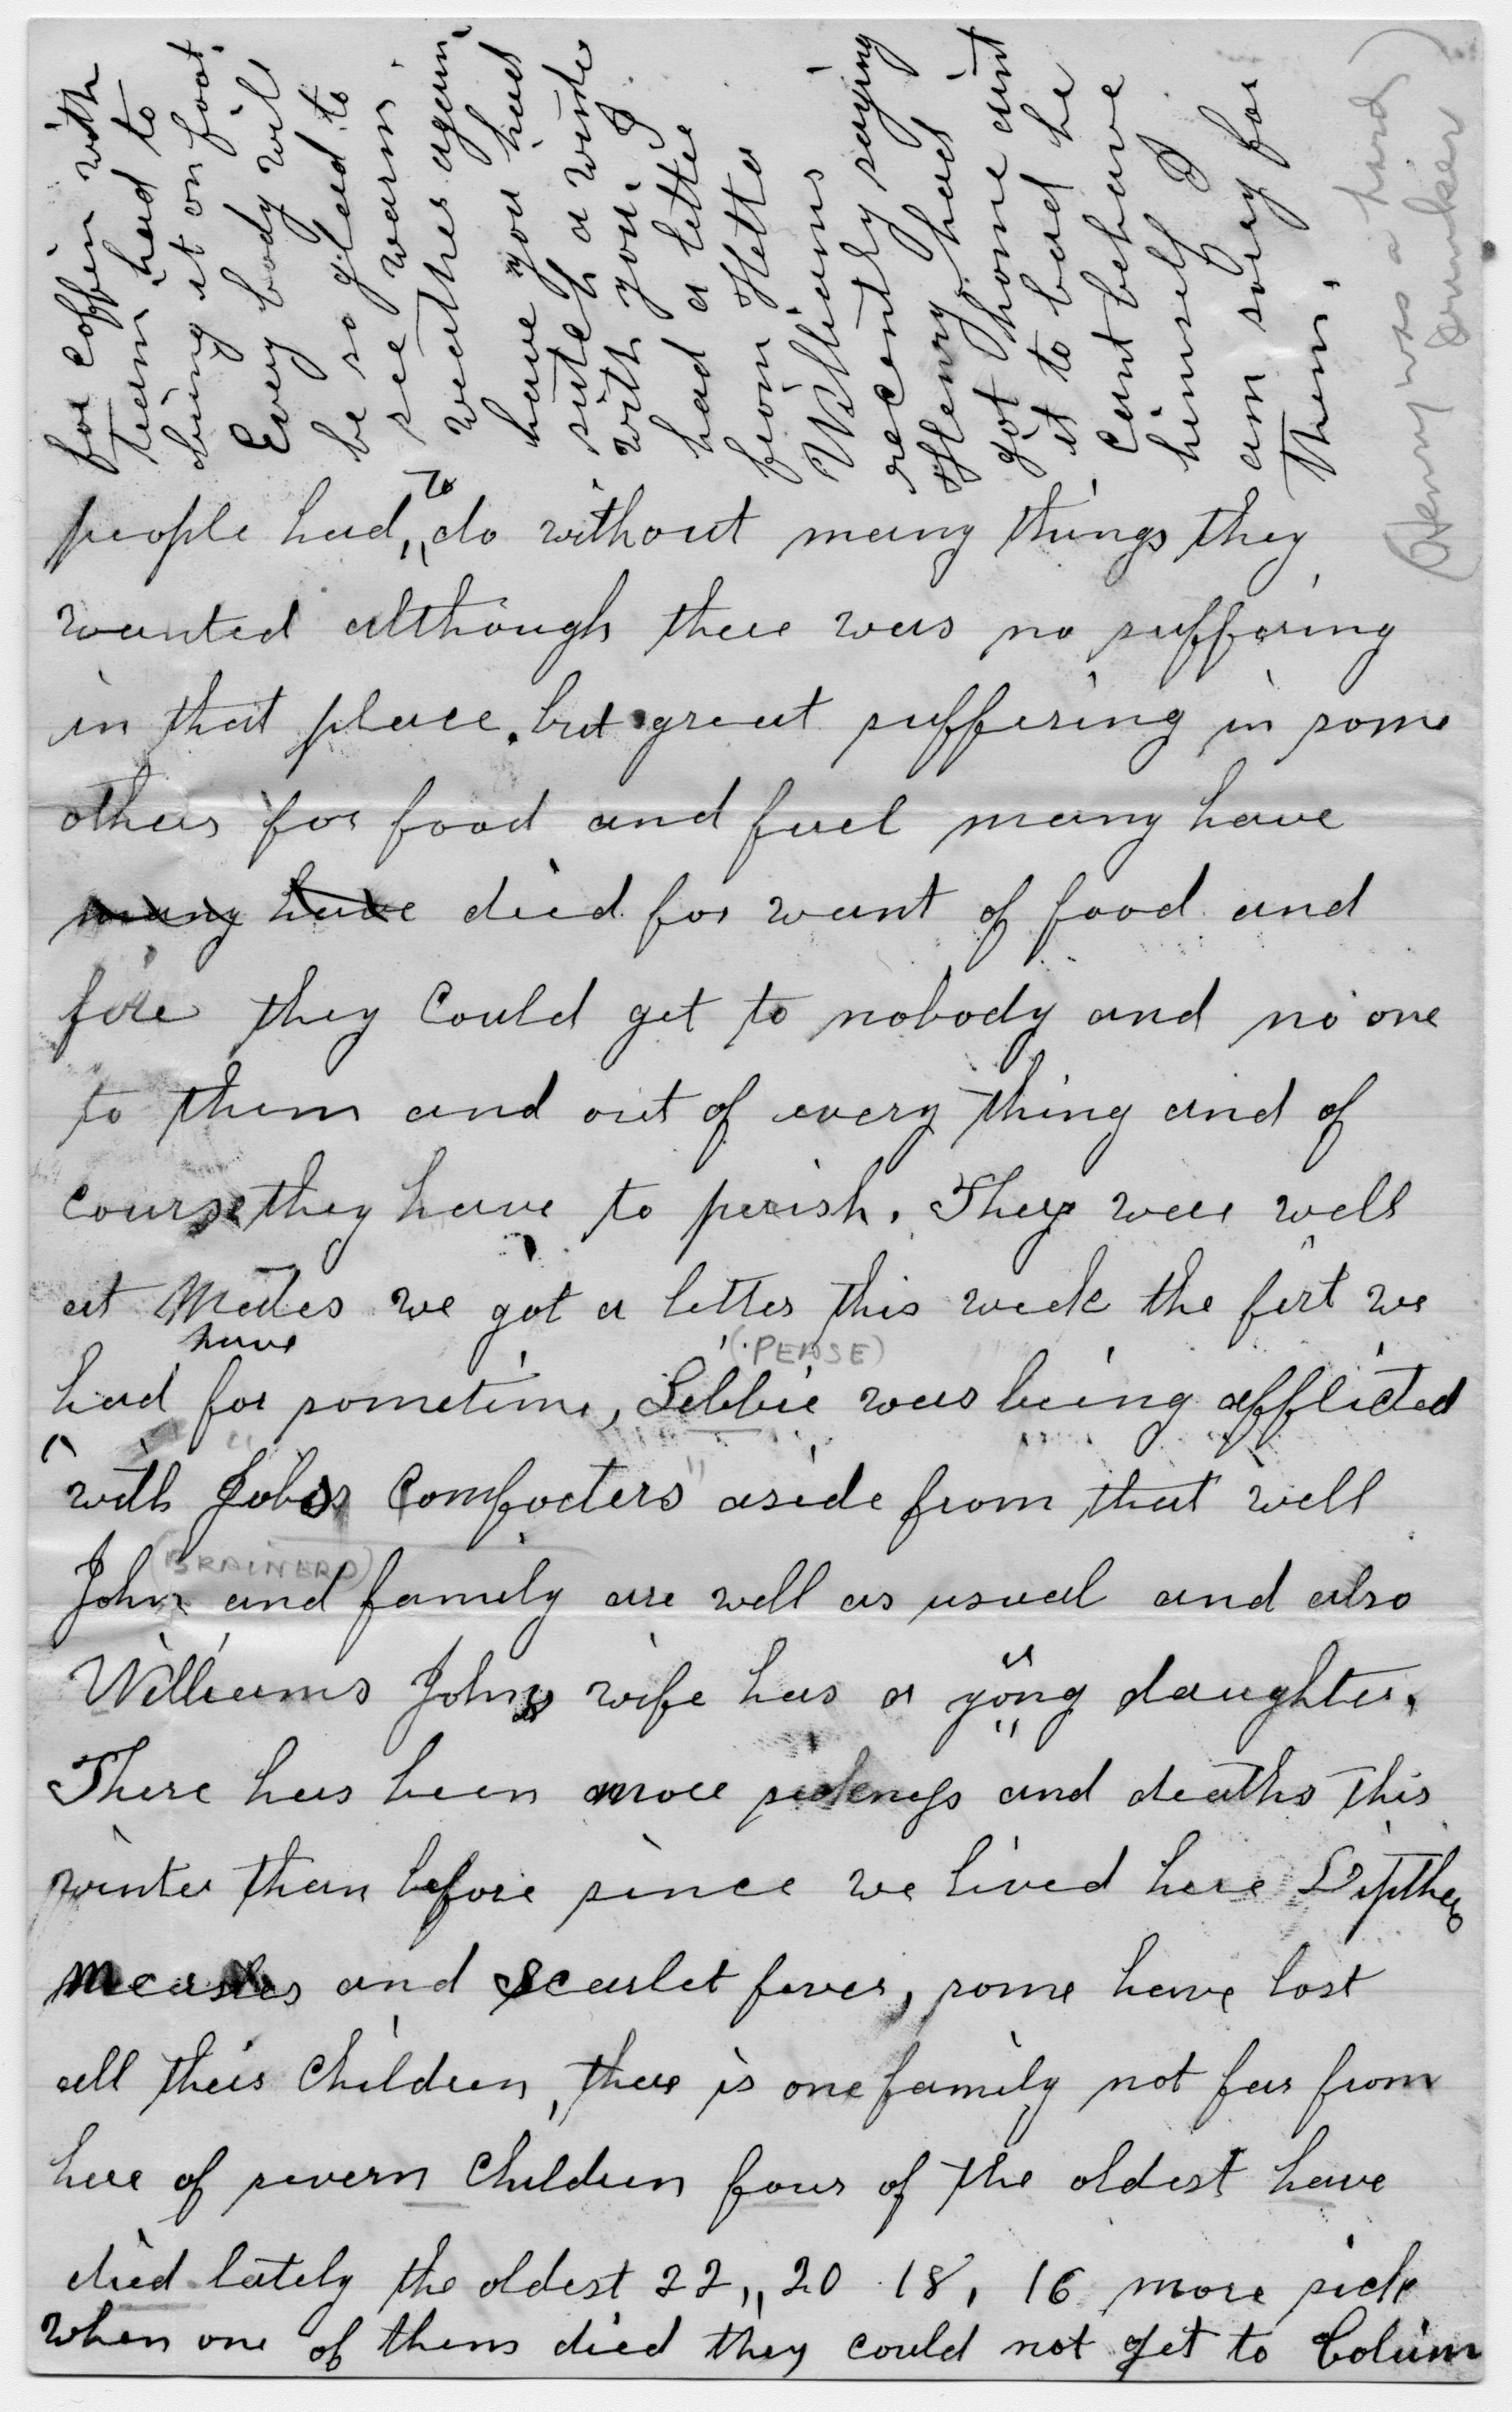 people had to do without many things they
wanted although there was no suffering
in that place. but great suffering in some
others for food and fuel many have
many have died for want of food and
fire they could get to nobody and no one
to them and out of every thing and of
course they have to perish. They were well
at Mates we got a letter this week the first we
have
(PENSE)
had for sometime, Libbie was being afflicted
with Jobs "Comforters" aside from that well
(BRAINERD)
John and family are well as usual and also
Williams Johns wife has a yong daughter.
There has been more sickness and deaths this
winter than before since we lived here Dipther
measles and Scarlet fever, some have lost
all their Children, there is one family not far from
here of severn Children four of the oldest have
died lately the oldest 22, 20 18, 16 more sick
when one of them died they could not get to Colum
for coffin with
team had to
bring it on foot.
Every body will
be so glad to
see warm
weather again
have you had
such a winter
with you. I
had a letter
from Hetta
Williams
recently saying
Henry had
got home aint
it to bad he
cant behave
himself I
am sorry for
them.
(Henry was a hard
drunker)